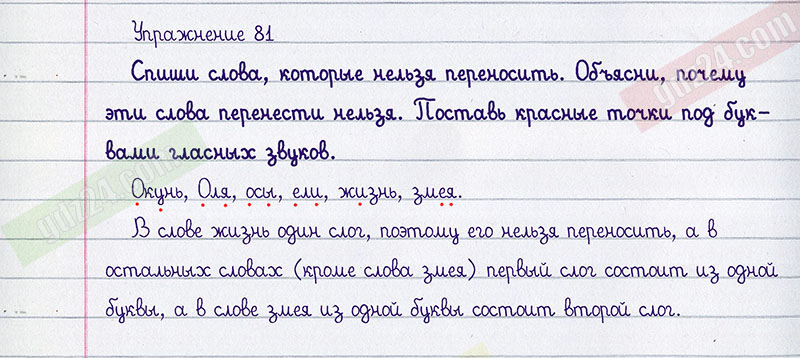 Упражнение 81
Спиши слова, которые нельзя переносить. Объясни, почему
эти слова перенести нельзя. Поставь красные точки под бук-
вами гласных звуков.
Окунь, Оля, осы, ели, жизнь, змея.
В слове жизнь один слог, поэтому его нельзя переносить, а в
остальных словах (кроме слова змея) первый слог состоит из одной
буквы, а в слове змея из одной буквы состоит второй слог.
gdz24.com
gdz24.com